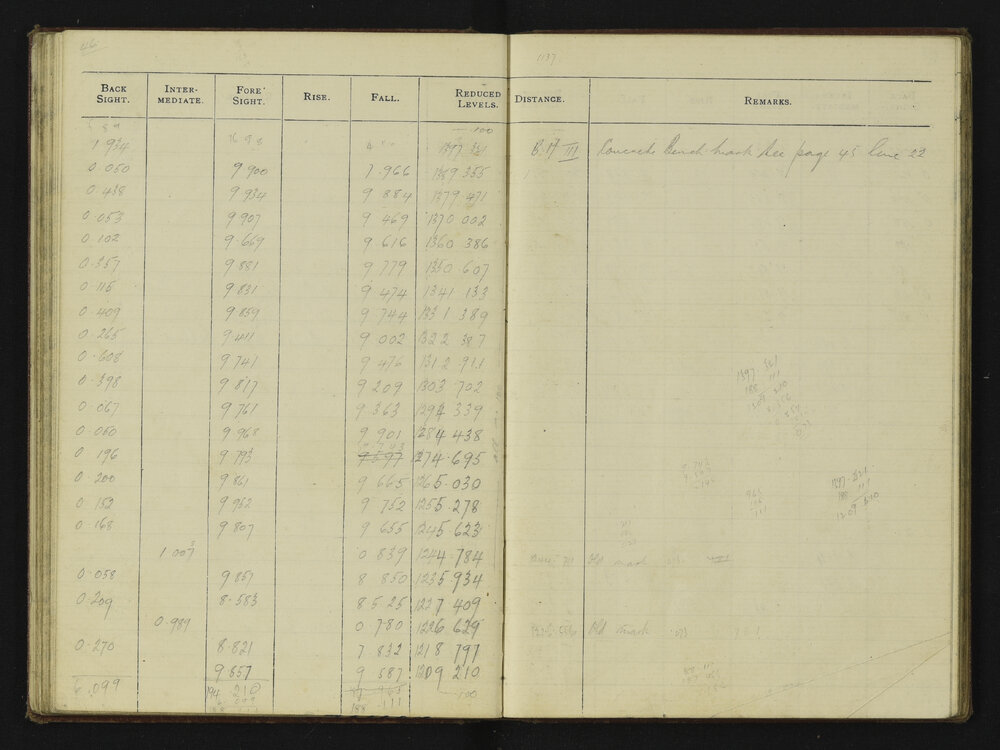 46
1137
BACK SIGHT. INTER-MEDIATE. FORE SIGHT. RISE. FALL. REDUCED LEVELS. DISTANCE. REMARKS.
.100
1 934 1397 321 B.M III Concrete Bench mark See page 45 line 22
0.050 9 900 7.966 1389 355
0.438 9 934 9 884 1379 471
0.053 9 907 9 469 1370 002
0.102 9.669 9 616 1360 386
0.357 9 881 9 779 1350 607
0.115 9.831 9.474 1341 133
0.409 9.859 9 744 1331 389
0.265 9 411 9 002 1322 387
0.608 9 741 9 476 1312 911
0.398 9 817 9 209 1303 702
0.067 9 761 9 363 1294 339
0.050 9.968 9 901 1284 438
0 196 9 793 1274.695
0.200 9 861 9 665 1265.030
0.152 9 952 9 752 1255.278
0.168 9 807 9 655 1245 623
1 007 0 839 1244.784 Old mark
0.058 9 857 8 850 1235.934
0.209 8.583 8.525 1227 409
0.989 0 780 1226 629 Old mark
0.270 8.821 7 832 1218 797
9.857 9 587 1209 210
6.099 194 210 .100
188 .111